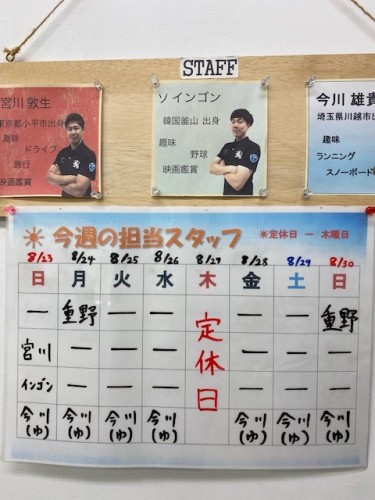 STAFF
宮川 敦生
東京都小平市出身
趣味
ドライブ
旅行
映画鑑賞
ソ インゴン
韓国釜山 出身
趣味
野球
映画鑑賞
今川 雄貴
埼玉県川越市出
趣味
ランニング
スノーボード
☀今週の担当スタッフ ☀定休日 ー 木曜日
8/23 8/24 8/25 8/26 8/27 8/28 8/29 8/30
日 月 火 水 木 金 土 日
ー 重野 ー ー 定休日 ー ー 重野
宮川 ー ー ー ー ー ー
インゴン ー ー ー ー ー ー
今川(ゆ) 今川(ゆ) 今川(ゆ) 今川(ゆ) 今川(ゆ) 今川(ゆ) 今川(ゆ)